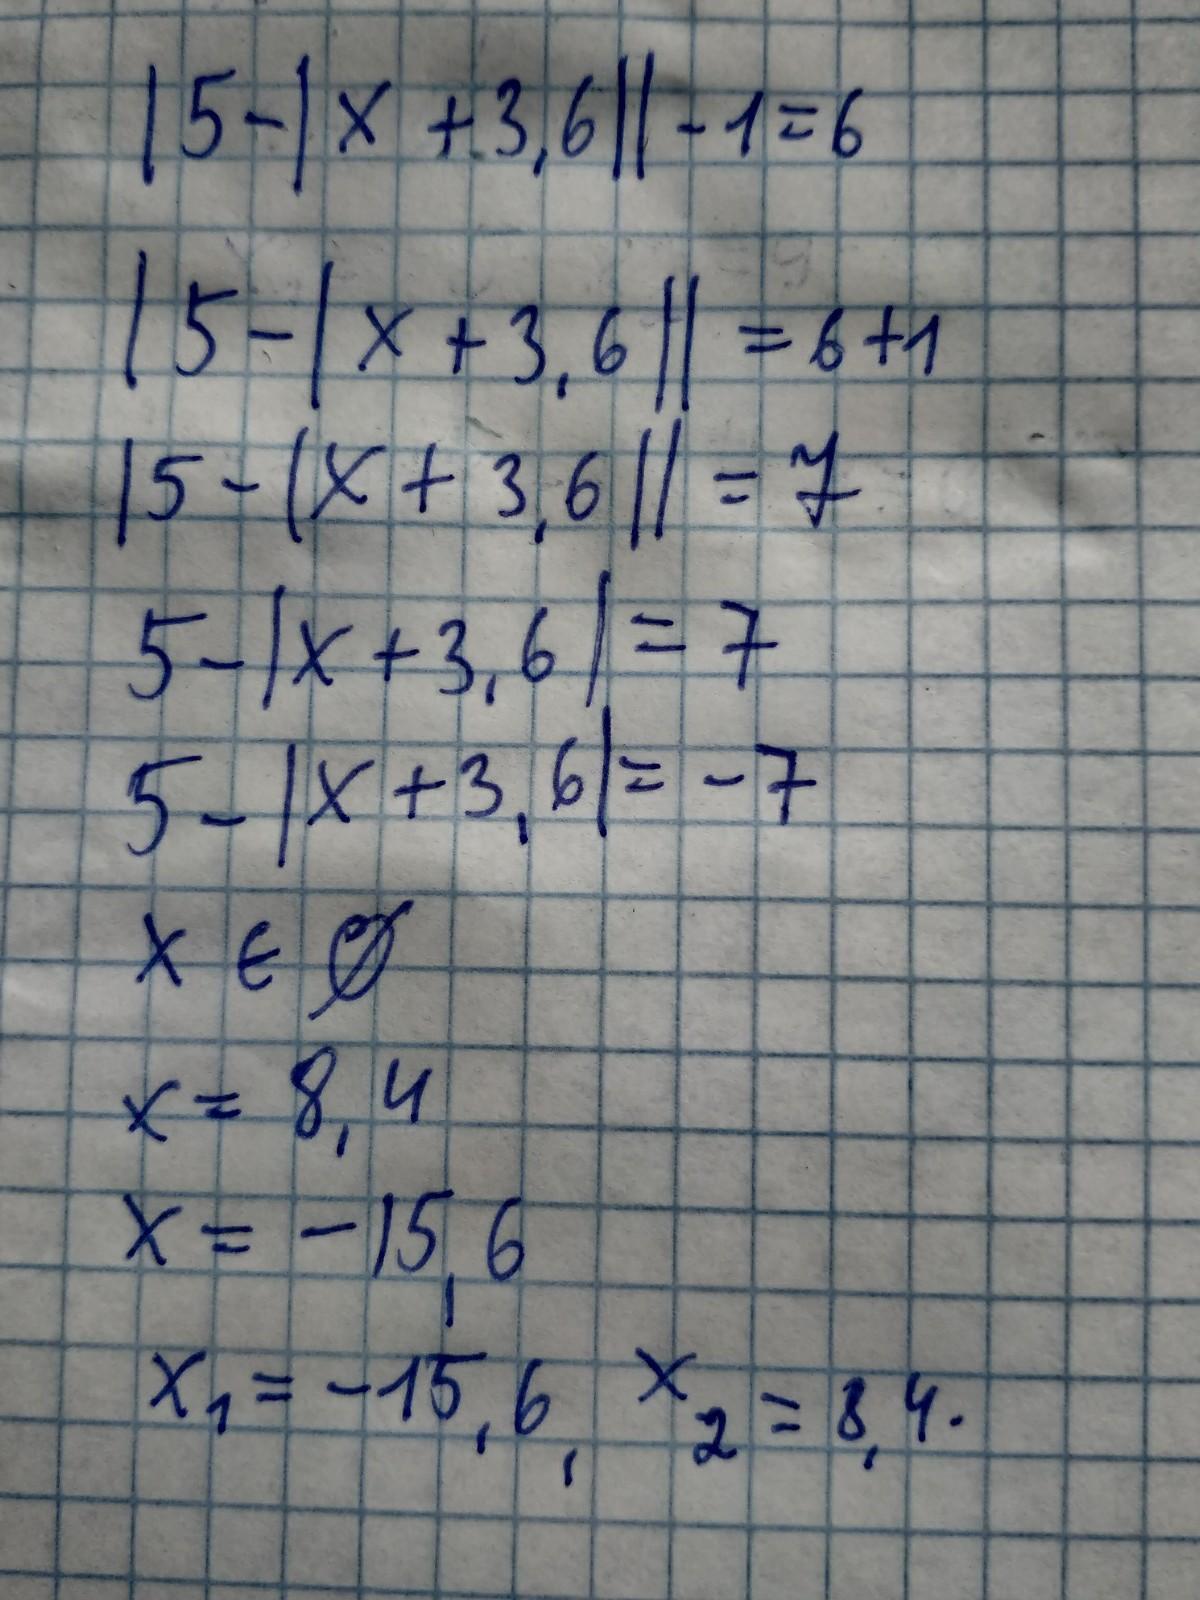 |5-|x+3,6||-1=6
|5-|x+3,6||=6+1
|5-|x+3,6||=7
5-|x+3,6|=7
5-|x+3,6|=-7
x∈∅
x=8,4
x=-15,6
x₁=-15,6, x₂=8,4.